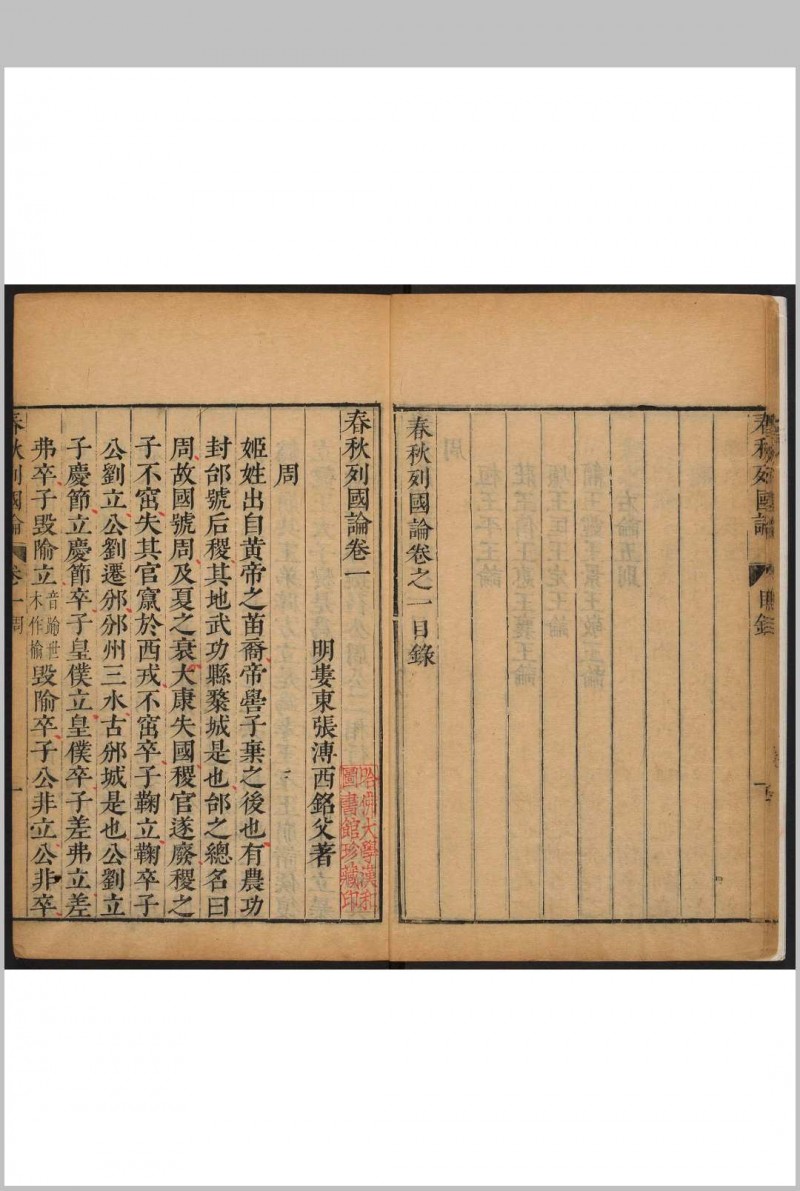 春秋列國論
目錄
春秋列國論卷之一目錄
春秋列國論卷一
明婁東張溥西銘父著
哈佛大學漢和
圖書館珍藏印
周
姬姓出自黃帝之苗裔帝嚳子棄之後也有農功
封邰號后稷其地武功縣斄城是也邰之總名曰
周故國號周及夏之衰太康失國稷官遂廢稷之
子不窋失其官竄於西戎不窋卒子鞠立鞠卒子
公劉立公劉遷邠邠州三水古邠城是也公劉立
子慶節立慶節卒子皇僕立皇僕卒子差弗立差
弗卒子毀隃立音踰世木作榆毀隃卒子公非立公非卒
春秋列國論
卷一周
一